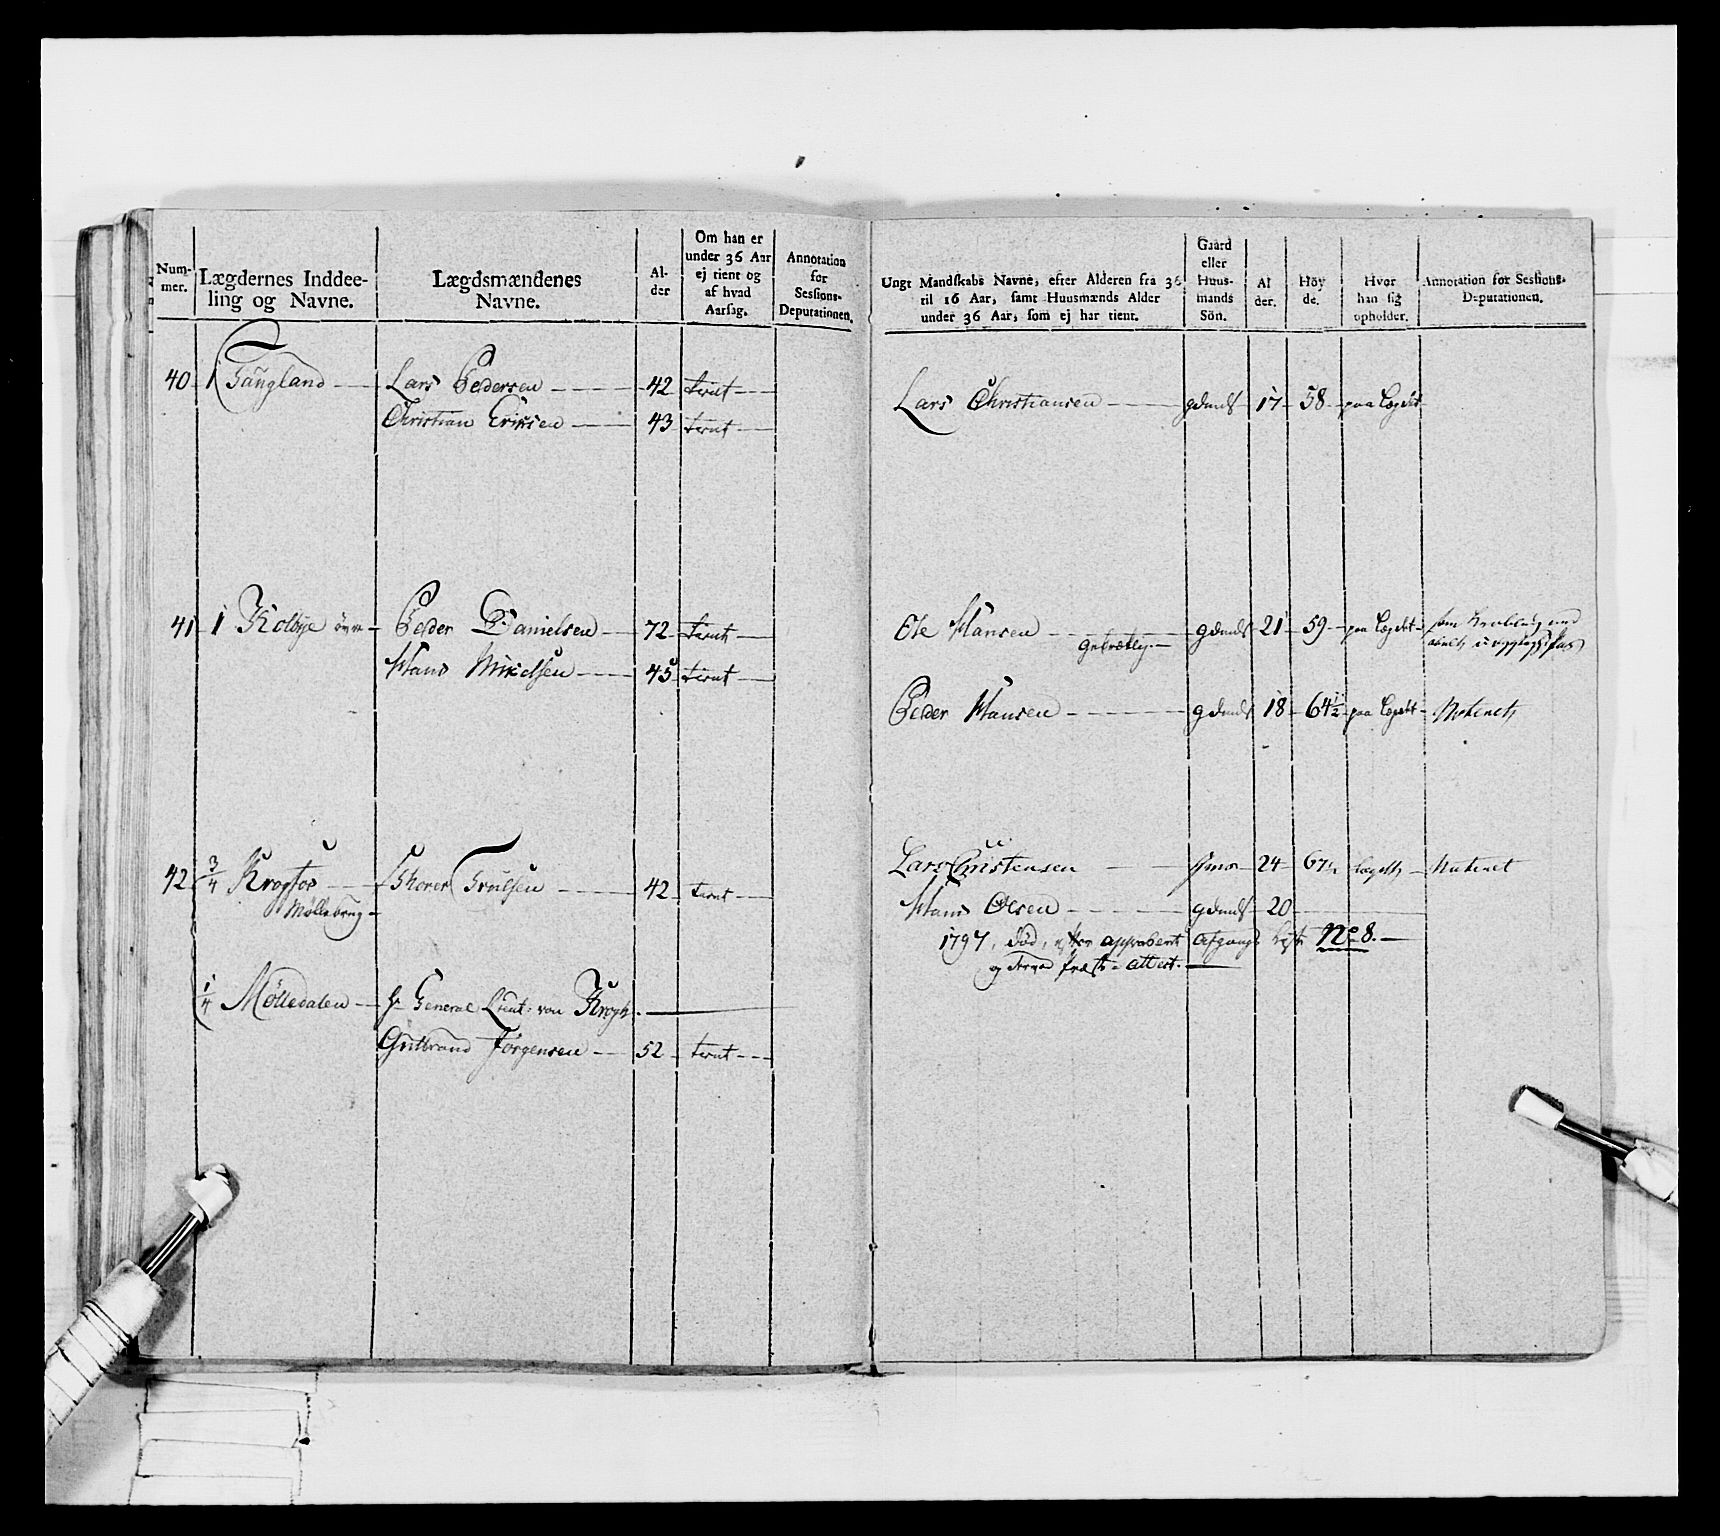 Num-
mer.
Lægdernes Inddee-
ling og Navne.
Lægdsmændenes
Navne.
Al-
der
Om han er
under 36 Aar
ej tient og
af hvad
Aarsag.
Annotation
for
Sessions-
Deputationen.
40 1 Taugland Lars Pedersen 42 tient
Christian Eriksen 43 tient
41 1 Kolbye övre Peder Danielsen 72 tient
Hans Mikelsen 45 tient
42 3/4 Krogfos Thorer Trulsen 42 tient
Møllebrug
1/4 Mölledalen Hr General Lieut: von Krogh
Gulbrand Jörgensen 52 tient
Ungt Mandskabs Navne, efter Alderen fra 36
til 16 Aar, samt Huusmænds Alder
under 36 Aar, som ej har tient.
Gaard
eller
Huus-
mands
Sön.
Al
der.
Höy
de.
Hvor
han sig
opholder.
Annotation for Sessions-
Deputationen.
Lars Christiansen gdmds 17 58 paa Lægdet
Ole Hansen gdmds 21 59 paa Lægdet
gebrækkelig
Peder Hansen gdmds 18 64 1/2 paa Lægdet Noteret
Lars Christensen 24 67 1/2 Lægdet Noteret
Hans Olsen gdmds 20
1797, död, efter approbert Afgangs Liste No 8.
og derved Præste-attest.